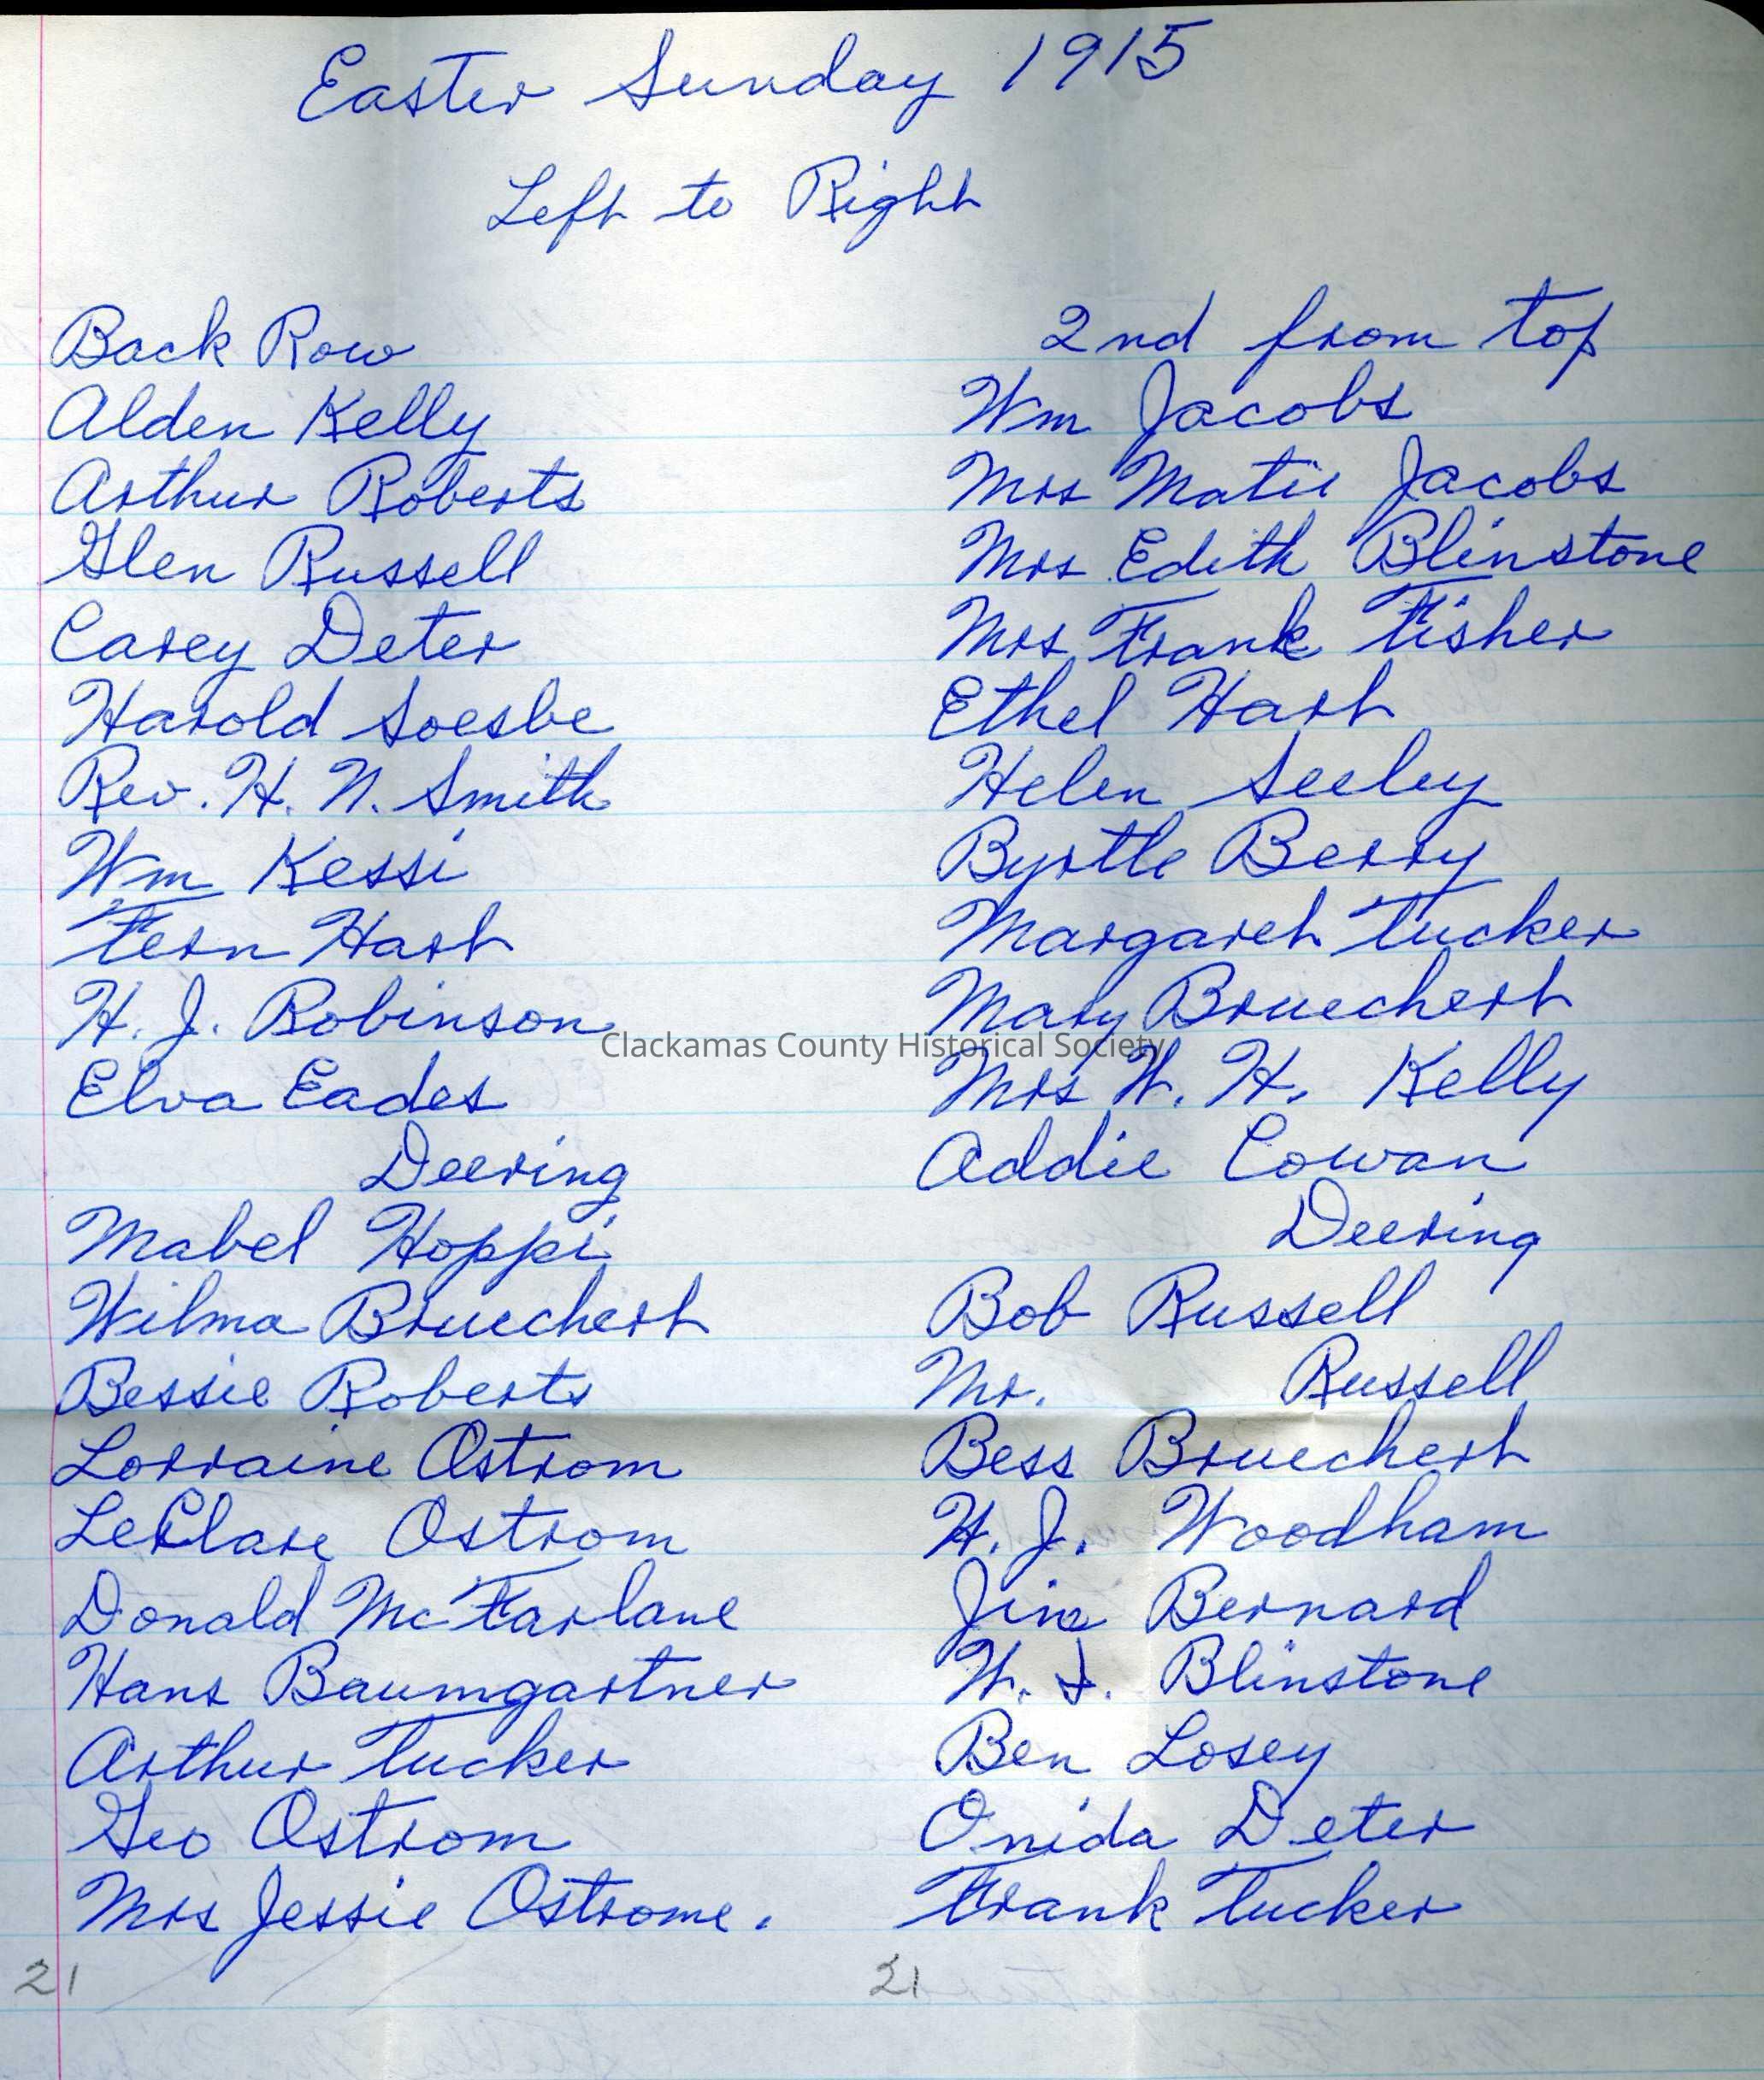 Easter Sunday 1915
Left to Right
Back Row
Alden Kelly
Arthur Roberts
Glen Russell
Carey Deter
Harold Soesbe
Rev. H. N. Smith
Wm Kessi
Fern Hart
H. J. Robinson
Elva Eades
Deering
Mabel Hoppi
Wilma Bruechert
Bessie Roberts
Lorraine Ostrom
LeClare Ostrom
Donald McFarlane
Hans Baumgartner
Arthur Tucker
Geo Ostrom
Mrs Jessie Ostrome.
21
2nd from top
Wm Jacobs
Mrs Matie Jacobs
Mrs Edith Blinstone
Mrs Frank Fisher
Ethel Hart
Helen Seeley
Byrtle Berry
Margaret Tucker
Mary Bruechert
Mrs W. H. Kelly
Addie Cowan
Deering
Bob Russell
Mr. Russell
Bess Bruechert
H. J. Woodham
Jim Bernard
W. J. Blinstone
Ben Losey
Onida Deter
Frank Tucker
21
Clackamas County Historical Society